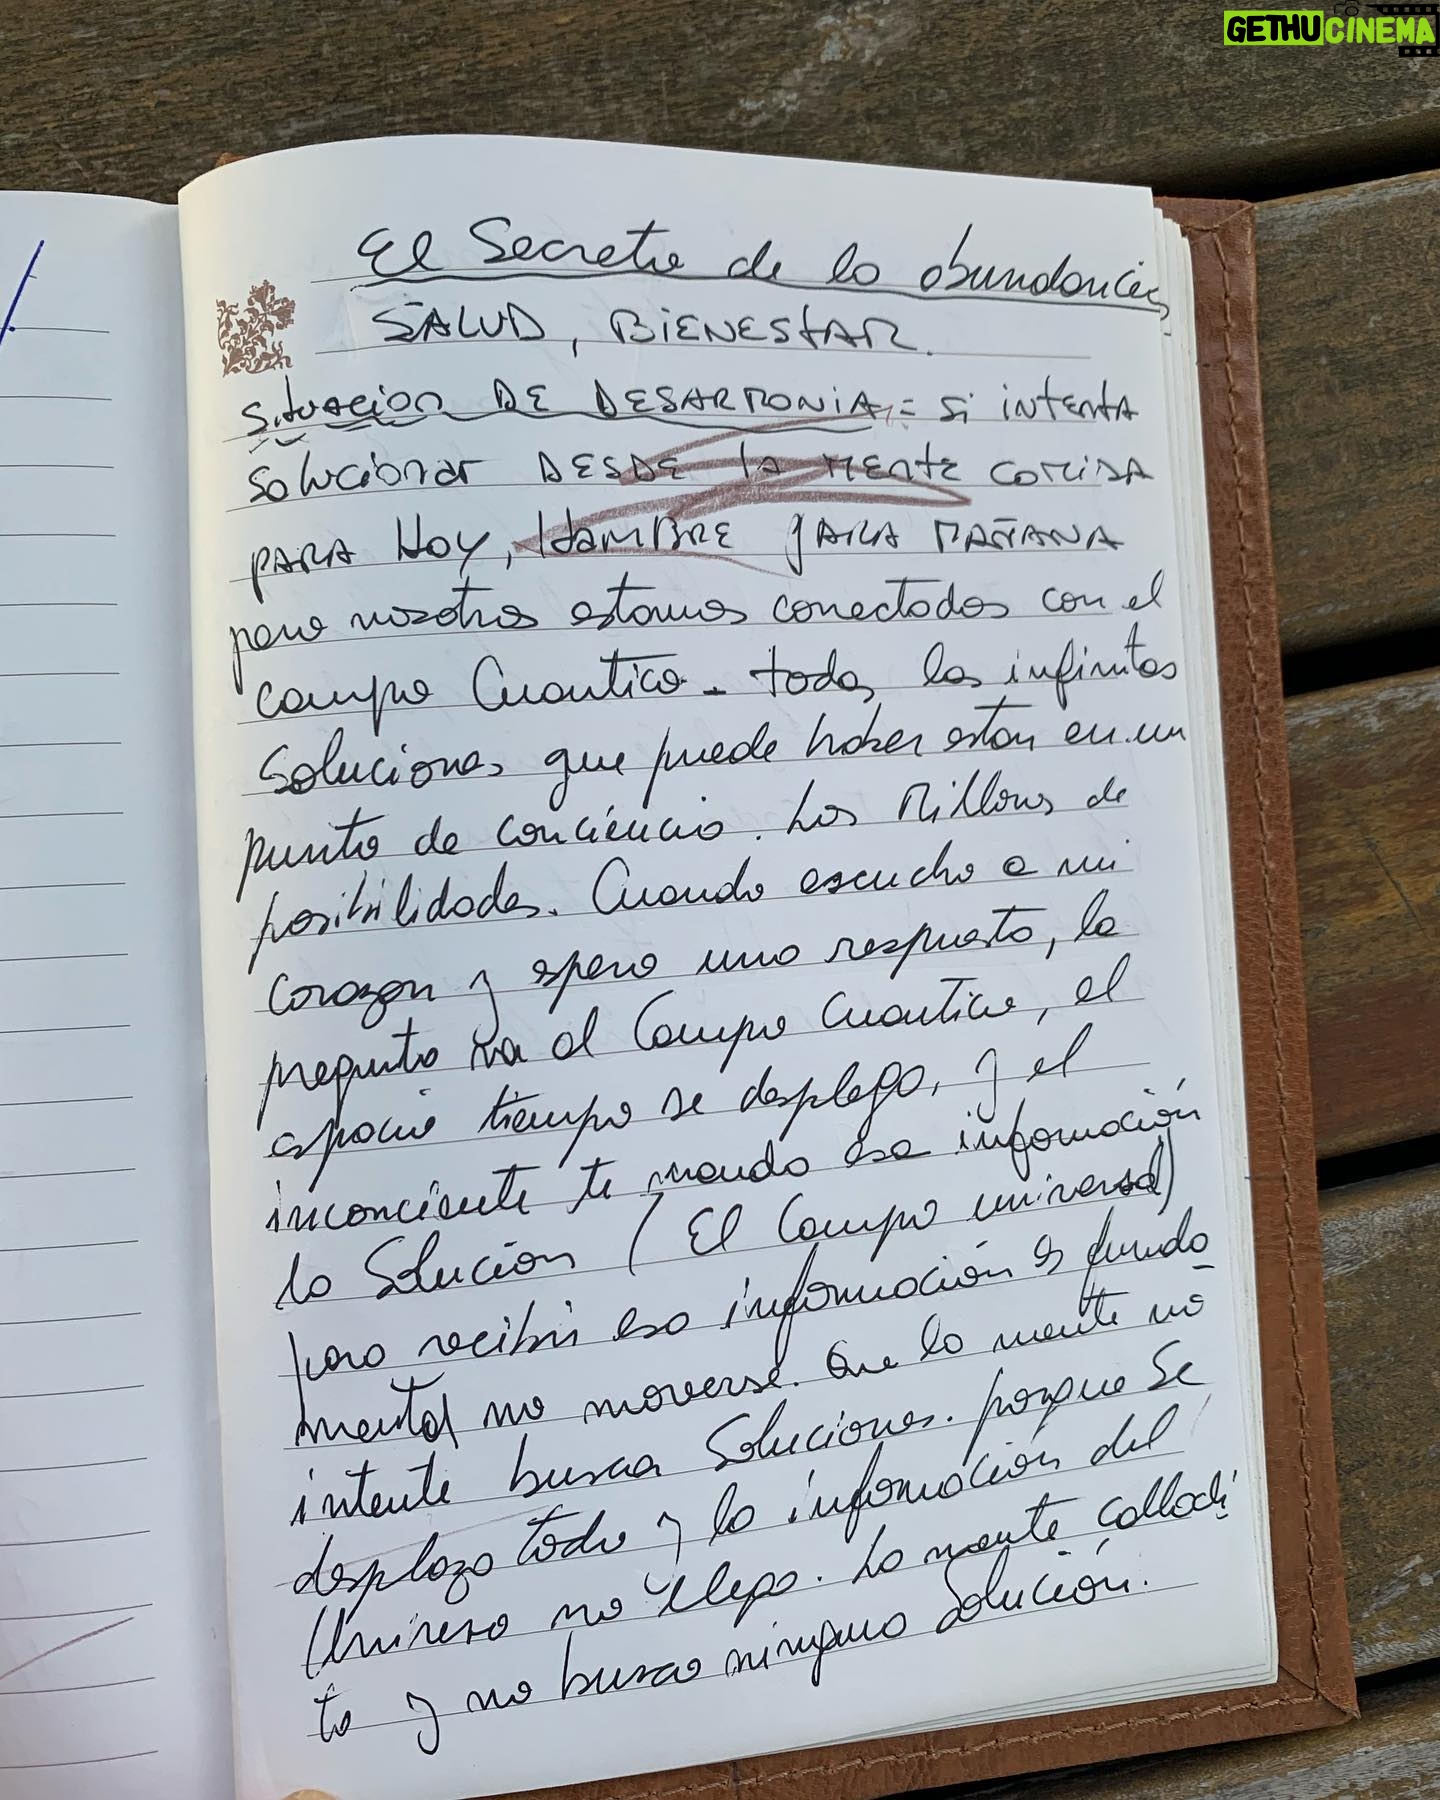 GETHUCINEMA
El Secreto de la abundancia
SALUD, BIENESTAR.
Situacion DE DESARMONIA = Si INTENTA
Solucionar DESDE la MENTE COMIDA
PARA HOY, HAMBRE PARA MAÑANA
pero nosotros estamos conectados con el
campo Cuantico - todas las infinitas
Soluciones que puede haber estan en un
punto de conciencia. Los Millones de
posibilidades. Cuando escucho a mi
Corazon y espero una respuesta, la
pregunta va al Campo Cuantico, el
espacio tiempo se desplega, y el
inconciente te manda esa información
la Solución (El Campo universal)
para recibir esa información es funda
mental no moverse. Que la mente no
intente buscar Soluciones. porque Se
desplaza todo y la información del
Universo no llega. La mente calladi
ta y no busca ninguna Solución.